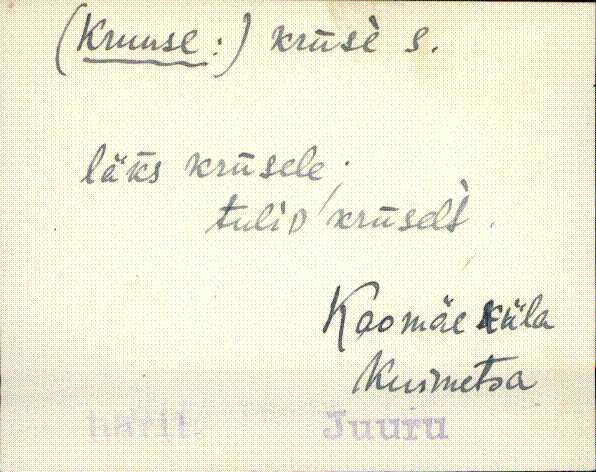 (Kruuse:) krūsè s.
läks krūsele;
tulid krūselt.
Kaomäe küla
Kuimetsa
haril. Juuru